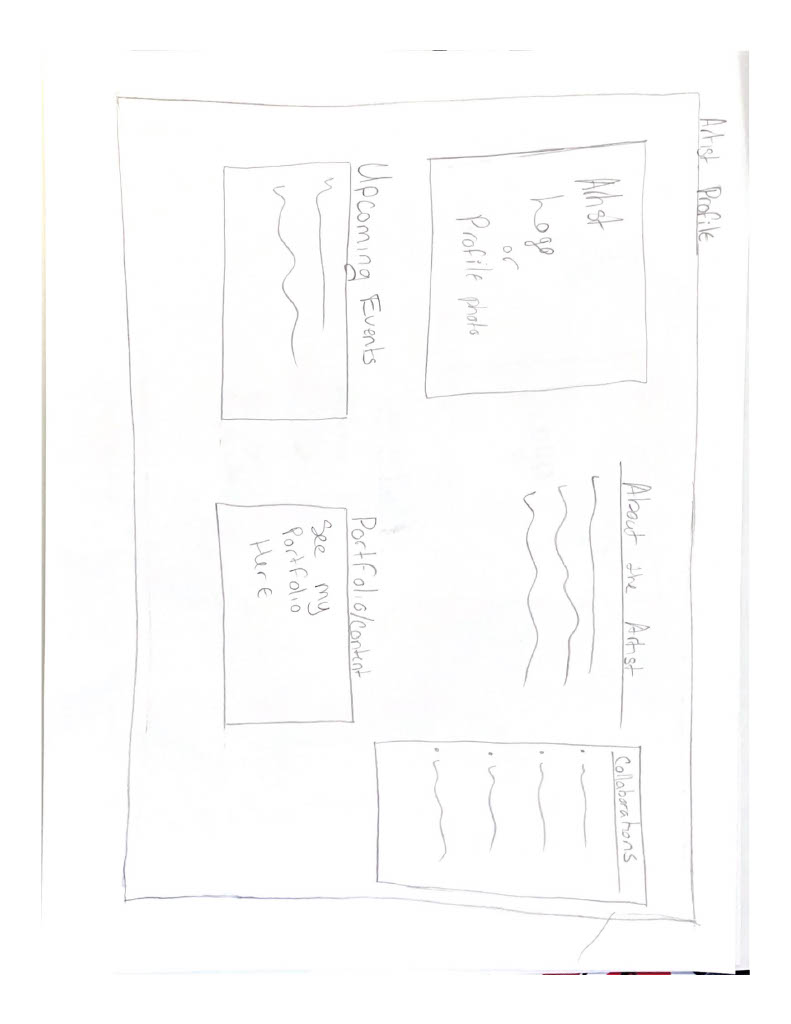 Artist Profile
Artist
Logo
or
Profile photo
About the Artist
Collaborations
Upcoming Events
Portfolio/content
See my
Portfolio
Here